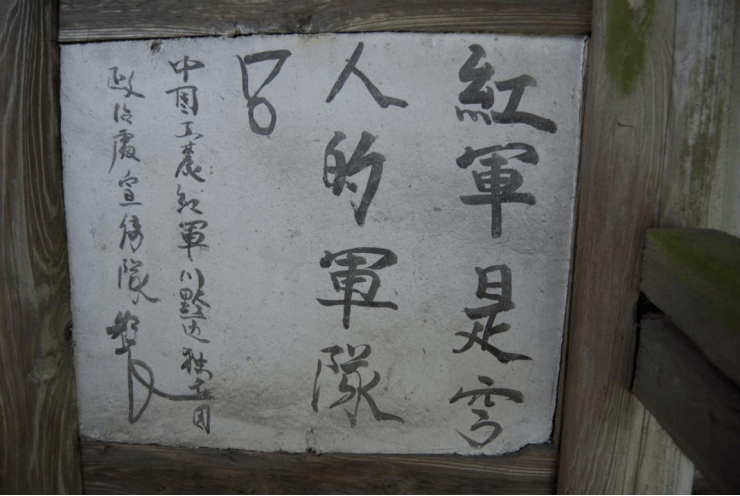 紅軍是穷
人的軍隊
!
中国工農紅軍川黔边独立团
政治處宣傳隊